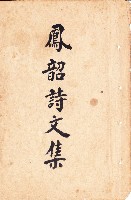 鳳韶詩文集